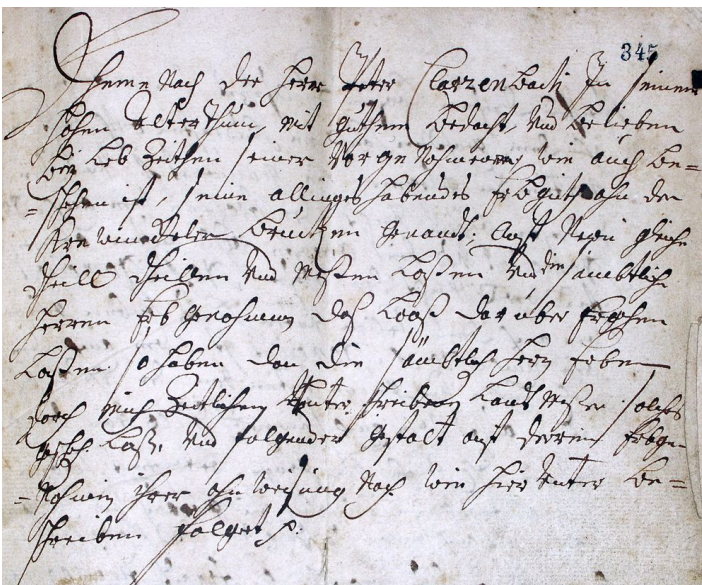 345
Deme Nach der Herr Peter Clarzenbach In seinem
hohen alterthum, mit guthem bedacht, Und belieben
bey Leb Zeithen seiner Vorgenohmenen wie auch be=
=schehen ist, seine alliges habendes Erbguth ahn der
Krewinckeler brucken genandt, auf Neun gleiche
theill theillen Und Meßen Laßen Und die sambtliche
Herren Erbgenohmen daß Looß darüber Ergehen
Laßen so haben dan die sämbtliche Herren Erben
durch mich Zeitlichen Unterschreibenen Landtmeßer solches
Laßen Und folgender gestalt auf deren Erbge=
=nohmen ihrer ahnweisung Nach wie hier Unter be=
schrieben folget